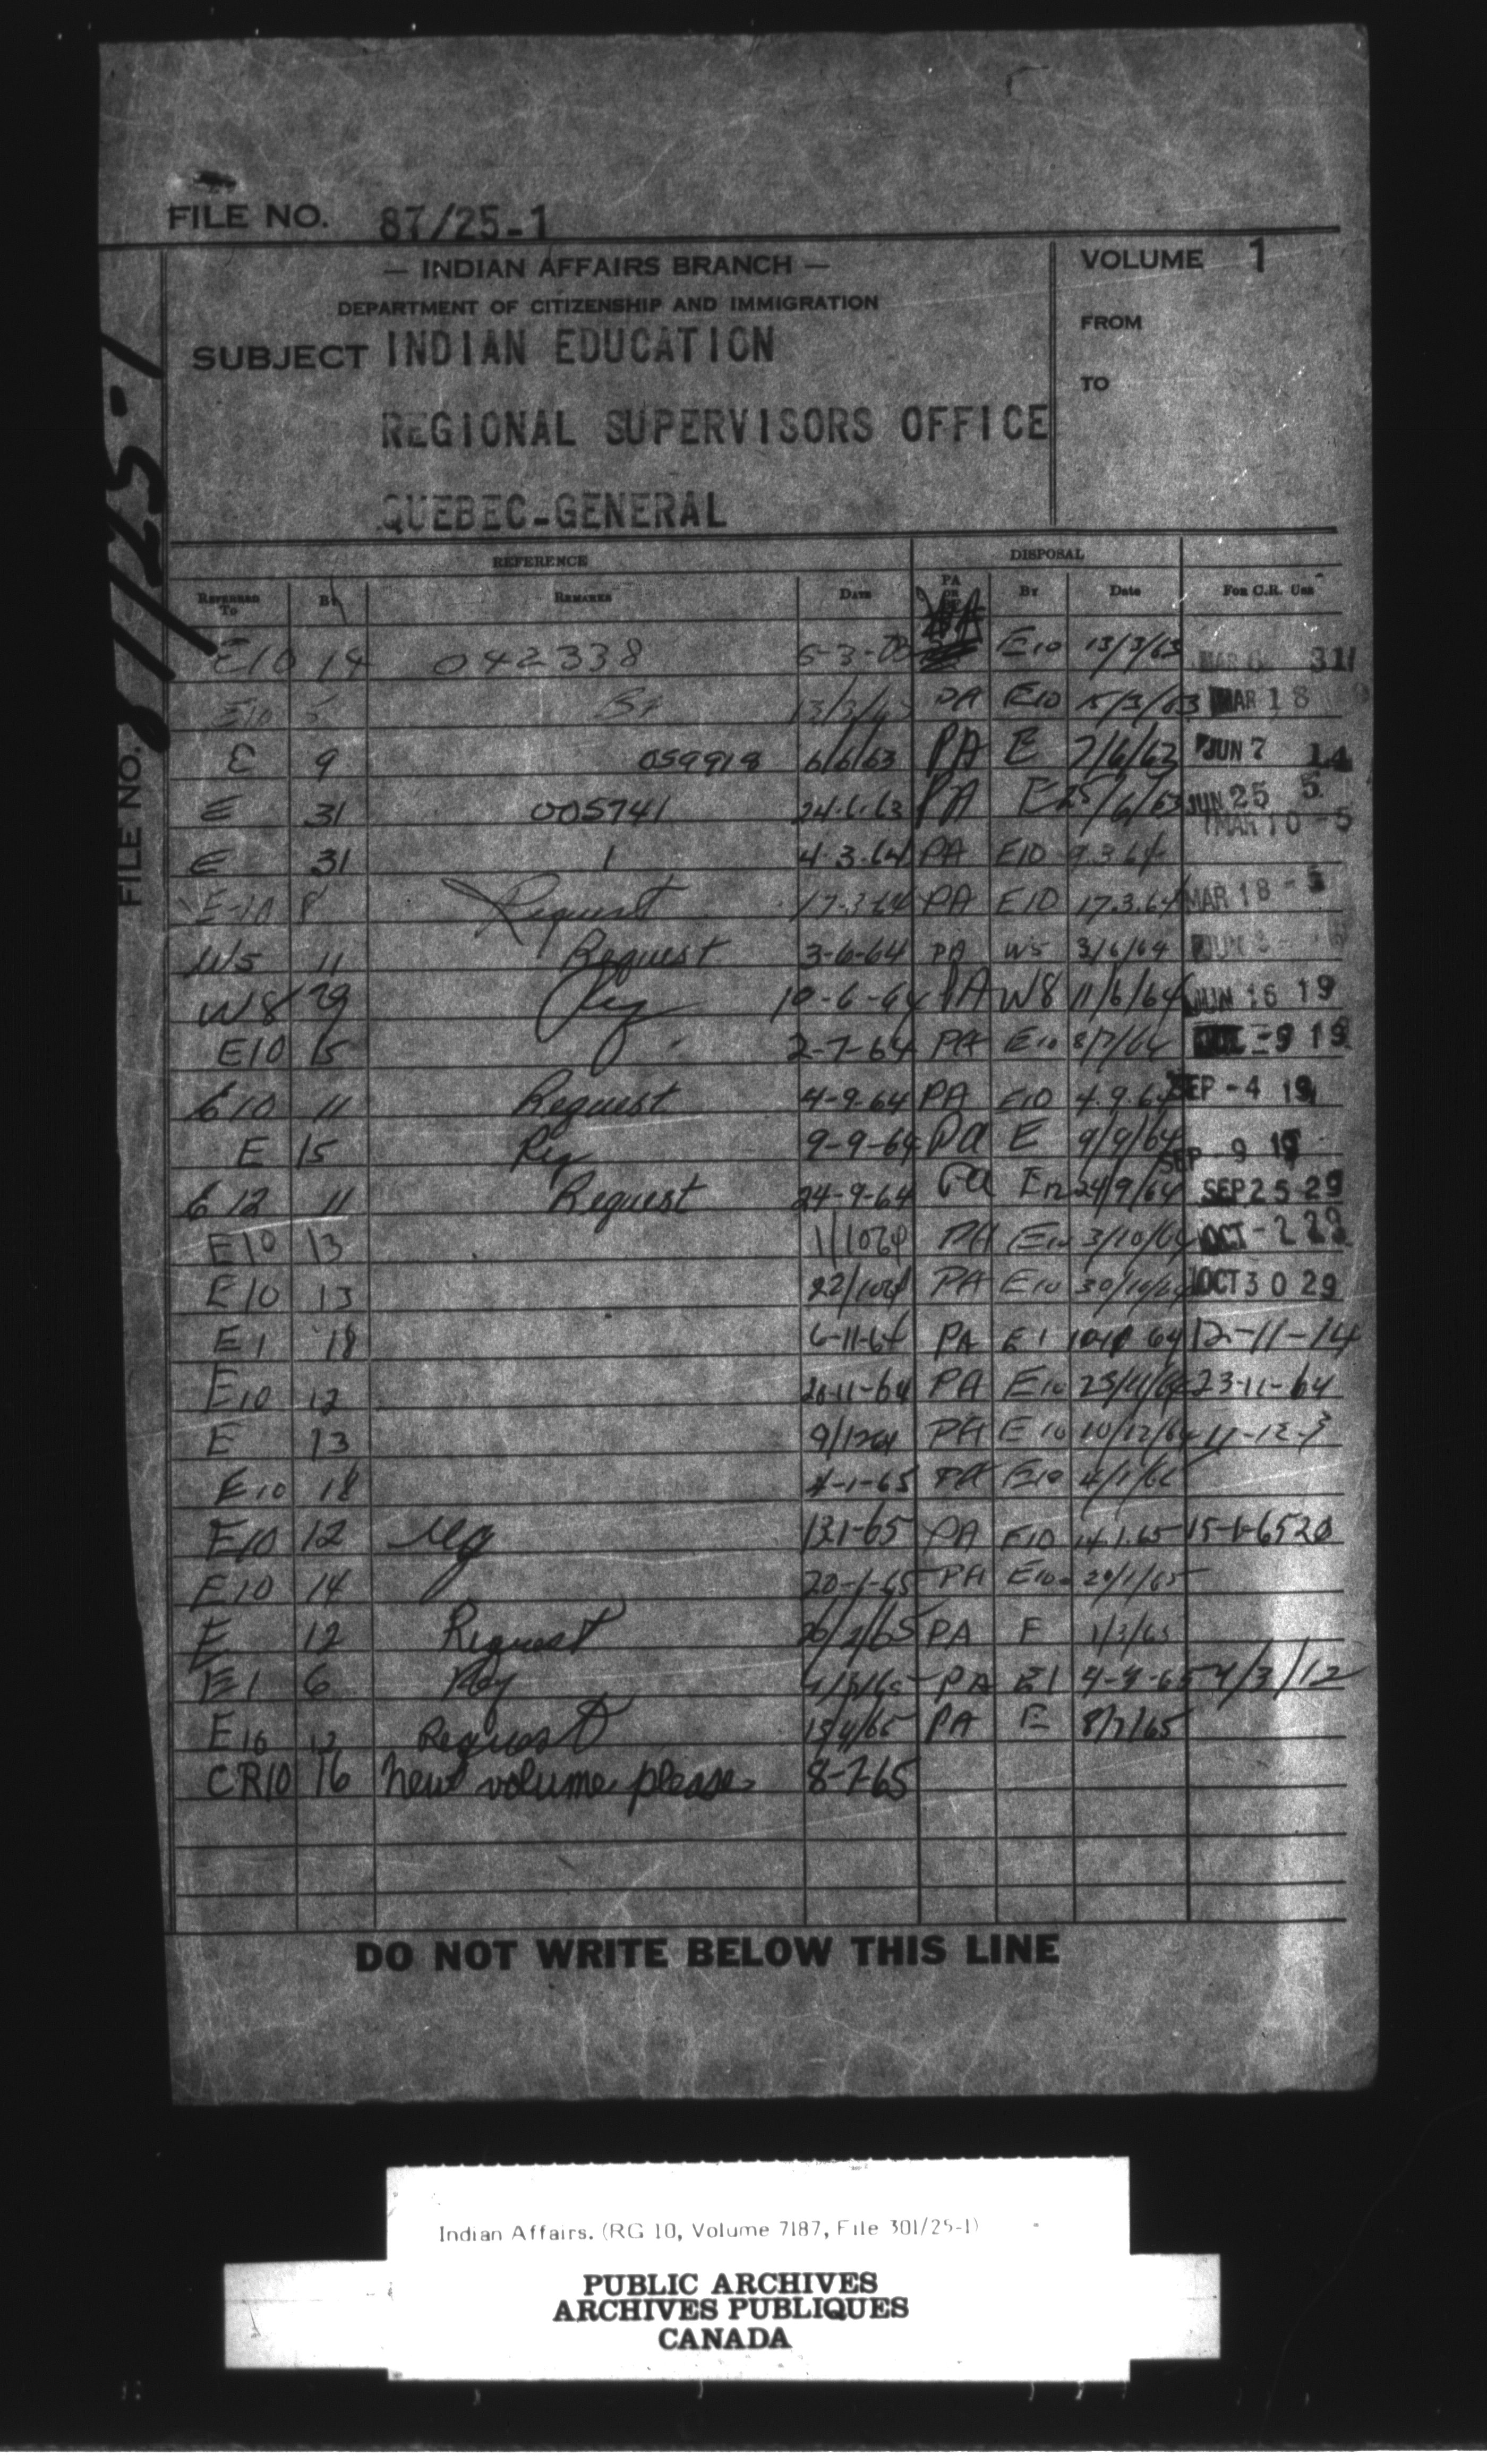 FILE NO. 87/25-1
— INDIAN AFFAIRS BRANCH —
DEPARTMENT OF CITIZENSHIP AND IMMIGRATION
SUBJECT INDIAN EDUCATION
REGIONAL SUPERVISORS OFFICE
QUEBEC-GENERAL
VOLUME 1
FROM
TO
FILE NO.
REFERENCE DISPOSAL
REFERRED TO BY REMARKS DATE PA OR BF BY Date FOR C.R. USE
E10 14 042338 PA E10 13/3/63 31
E10 13/3/63 PA E10 15/3/63 MAR 18
E 9 059918 6/6/63 PA E 7/6/63 JUN 7 14
E 31 005741 24.6.63 PA E 25/6/63 JUN 25 5
MAR 10 -5
E 31 1 4.3.64 PA E10 9.3.64
E10 8 Request 17-3-64 PA E10 17.3.64 MAR 18 -5
W5 11 Request 3-6-64 PA W5 3/6/64
W8 29 Req 10-6-64 PA W8 11/6/64 JUN 16 19
E10 15 2-7-64 PA E10 8/7/64 -9 19
E10 11 Request 4-9-64 PA E10 4.9.64 SEP -4 19
E 15 Req 9-9-64 Pa E 9/9/64 SEP 9 19
E12 11 Request 24-9-64 Pa E12 24/9/64 SEP 25 29
E10 13 1/10 64 PA E10 3/10/64 OCT -2 29
E10 13 22/10 64 PA E10 30/10/64 OCT 30 29
E1 18 6-11-64 PA E1 64 12-11-14
E10 12 20-11-64 PA E10 23/11/64 23-11-64
E 13 9/12 64 PA E10 10/12/64 11-12-
E10 18 4-1-65 PA E10 4/1/65
E10 12 Req 13-1-65 PA E10 14.1.65 15-1-65 20
E10 14 20-1-65 PA E10 20/1/65
E 12 Request 26/2/65 PA E 1/3/65
E1 6 Req PA E1 4/3/12
E10 12 Request 15/4/65 PA E 8/7/65
CR10 16 New volume please 8-7-65
DO NOT WRITE BELOW THIS LINE
Indian Affairs. (RG 10, Volume 7187, File 301/25-1)
PUBLIC ARCHIVES
ARCHIVES PUBLIQUES
CANADA